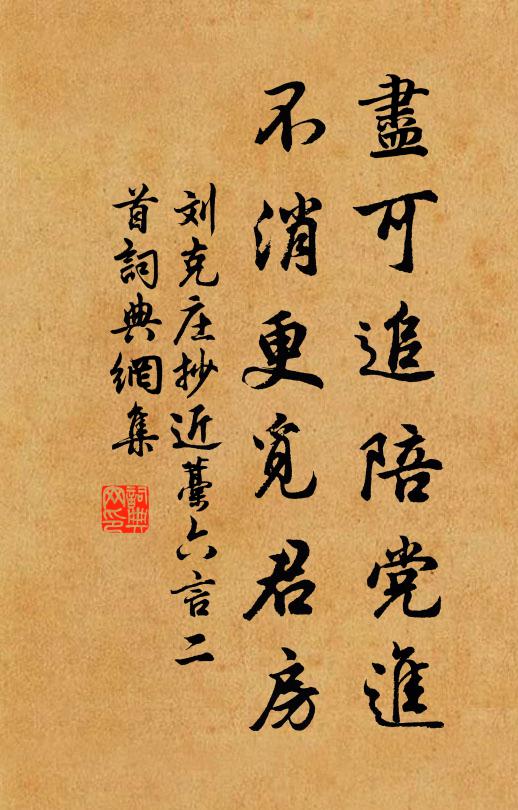 盡可追陪党進
不消更覓君房
刘克庄抄近藁六言二
首詞典網集
詞典
网印